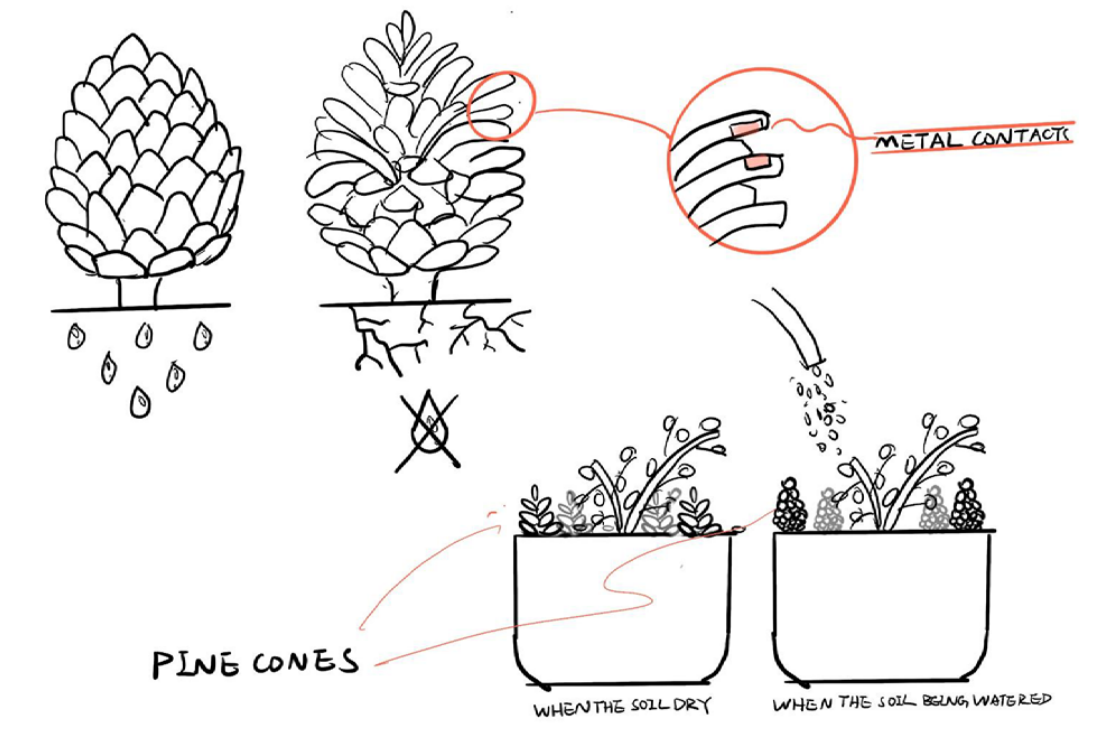 METAL CONTACTS
PINE CONES
WHEN THE SOIL DRY
WHEN THE SOIL BEING WATERED